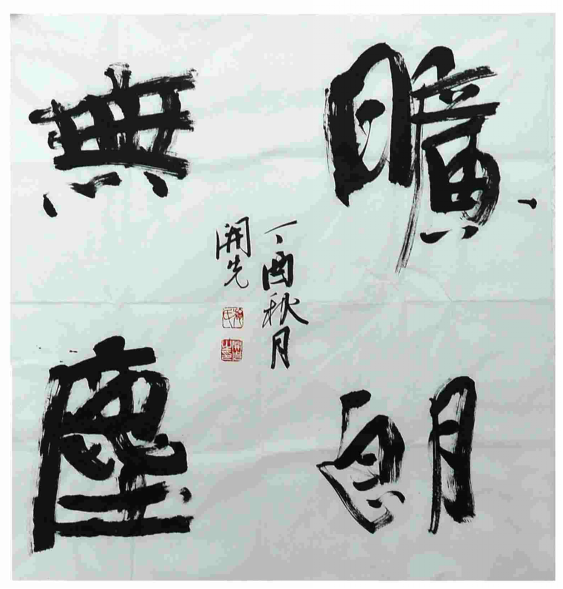 曠朗
無塵
丁酉秋月
開先